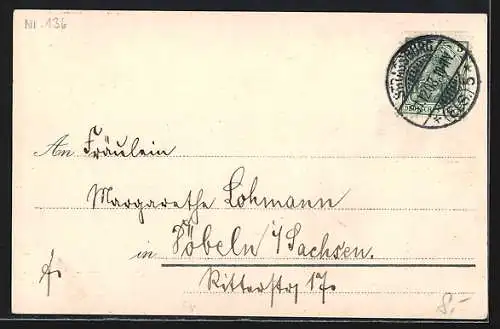 Nr. 136
STRASSBURG
(ELS.) 5
An Fräulein
Margarethe Lohmann
in Döbeln i/Sachsen.
Ritterstr. 17.
8,-